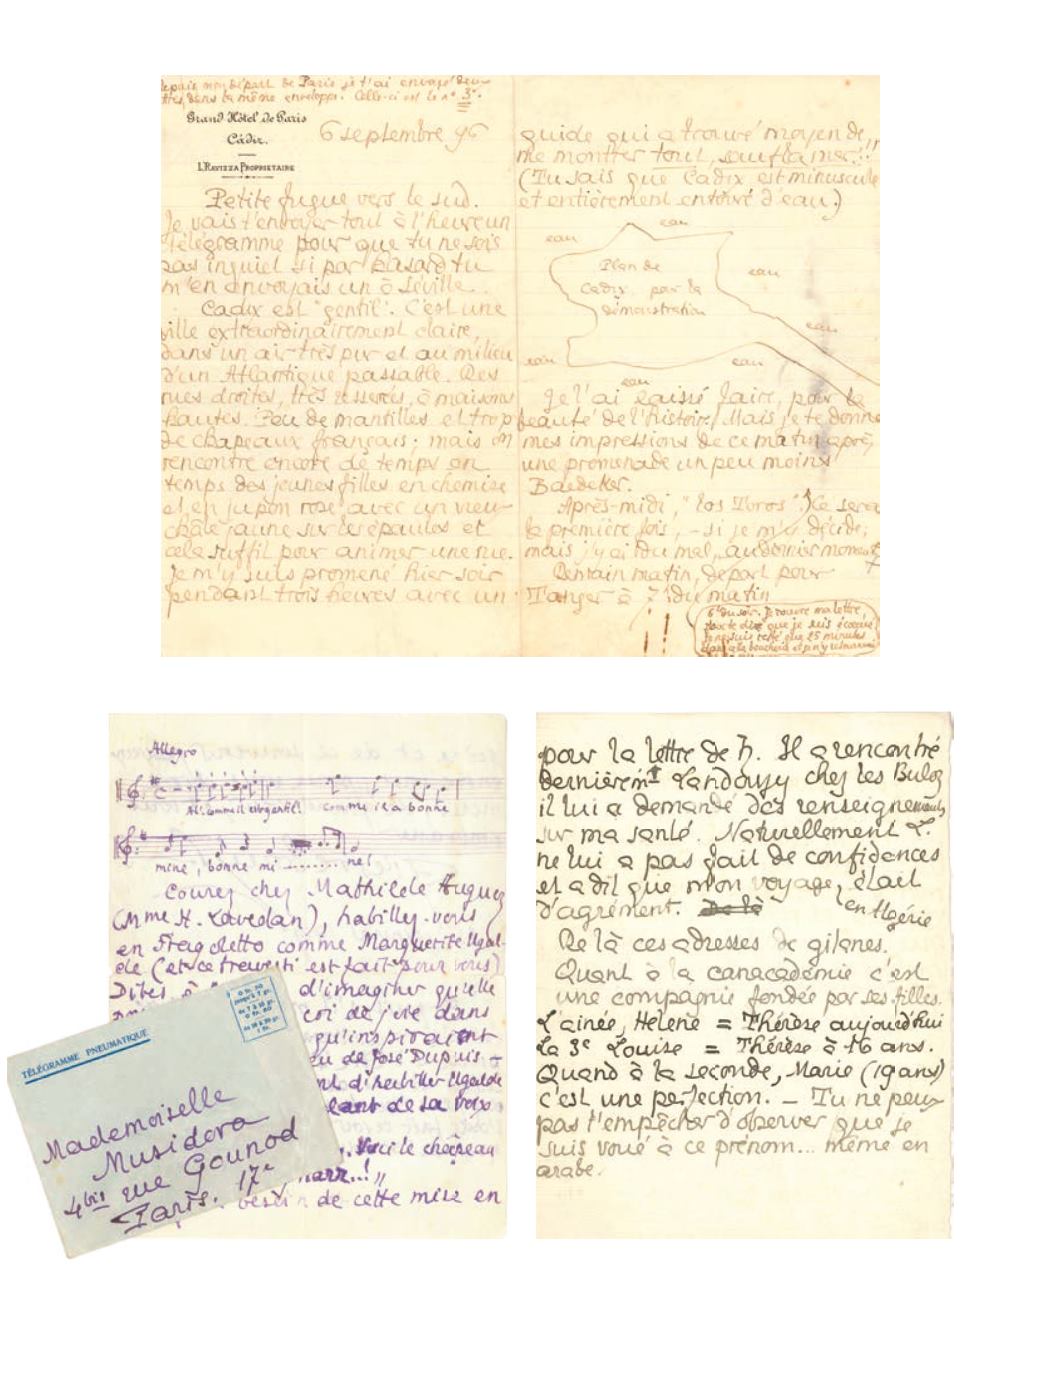 depuis mon départ de Paris je t'ai envoyé deux
lettres, dans la même enveloppe. Celle-ci est le nº 3.
Grand Hôtel de Paris
Cádiz.
L. RAVIZZA PROPRIETAIRE
6 septembre 96
Petite fugue vers le sud.
Je vais t'envoyer tout à l'heure un
télégramme pour que tu ne sois
pas inquiet si par hasard tu
m'en envoyais un à Séville.
Cadix est "gentil". C'est une
ville extraordinairement claire,
dans un air très pur et au milieu
d'un Atlantique passable. Des
rues droites, très resserées, à maisons
hautes. Peu de mantilles et trop
de chapeaux français; mais on
rencontre encore de temps en
temps des jeunes filles en chemise
et en jupon rose avec un vieux
châle jaune sur les épaules et
cela suffit pour animer une rue.
Je m'y suis promené hier soir
pendant trois heures avec un
guide qui a trouvé moyen de
me montrer tout, sauf la mer!!
(Tu sais que Cadix est minuscule
et entièrement entouré d'eau.)
eau
eau
eau
Plan de
Cadix, par la
démonstration
eau
eau
eau
eau
Je l'ai laissé faire, pour la
beauté de l'histoire. Mais je te donne
mes impressions de ce matin après
une promenade un peu moins
Baedeker.
Après-midi, "los Toros". Ce sera
la première fois, - si je m'y décide;
mais j'y ai du mal, au dernier moment
Demain matin, départ pour
Tanger à 7h du matin
!!
6h du soir. Je rouvre ma lettre
pour te dire que je suis écœuré
Je ne suis resté que 25 minutes
dans la boucherie et
Allegro
Ah! comme il est gentil! comme il a bonne
mine, bonne mi ........ ne!
Courez chez Mathilde Auguez
(Mme H. Lavedan), habillez-vous
en Fragoletto comme Marguerite Ugal-
de (et ce travesti est fait pour vous)
Dites à d'imaginer qu'elle
cri de joie dans
qu'inspiraient
eu de José Dupuis -
nt d'habiller Ugalde
lant de sa voix
Voici le chapeau
narr..!"
besoin de cette mise en
TÉLÉGRAMME PNEUMATIQUE
Mademoiselle
Musidora
4bis rue Gounod
Paris. 17e
pour la lettre de h. Il a rencontré
dernièremt Landouzy chez les Buloz
il lui a demandé des renseignements
sur ma santé. Naturellement L.
ne lui a pas fait de confidences
et a dit que mon voyage, était
d'agrément. en Algérie
De là ces adresses de gitanes.
Quant à la canacadémie c'est
une compagnie fondée par ses filles.
L'ainée, Hélène = Thérèse aujourd'hui
La 3e Louise = Thérèse à 16 ans.
Quand à la seconde, Marie (19 ans)
c'est une perfection. - Tu ne peux
pas t'empêcher d'observer que je
suis voué à ce prénom... même en
arabe.